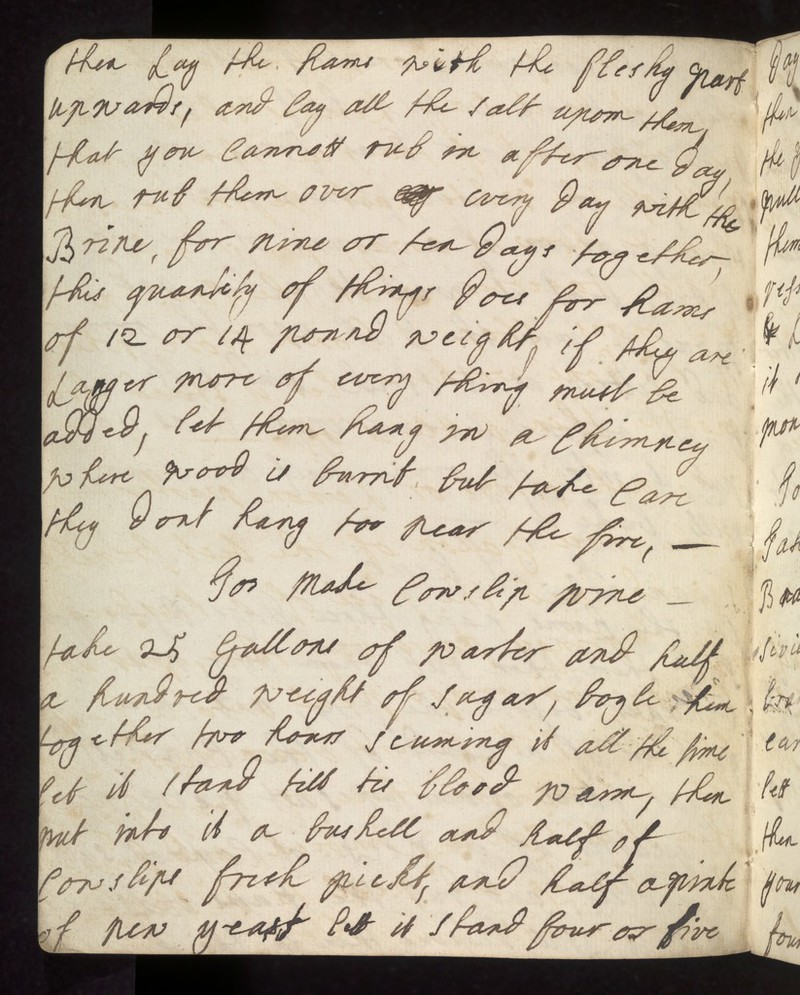 then Lay the hams with the fleshy part
upwards, and lay all the salt upon them,
that you cannott rub in after one day,
then rub them over every day with the
Brine, for nine or ten days together,
this quantity of things does for hams
of 12 or 14 pound weight, if they are
Larger more of every thing must be
added, let them hang in a Chimney
where wood is burnt but take Care
they dont hang too near the fire, —
To Make Cowslip wine —
take 25 Gallons of warter and half
a hundred weight of sugar, boyle them
together two hours scuming it all the time
let it stand till tis blood warm, then
put into it a bushell and half of
Cowslips fresh pickt, and half a pinte
of new yeast lett it stand four or five
Day
then
the
pull
them
it
mon
To
Take
lett
then
your
four